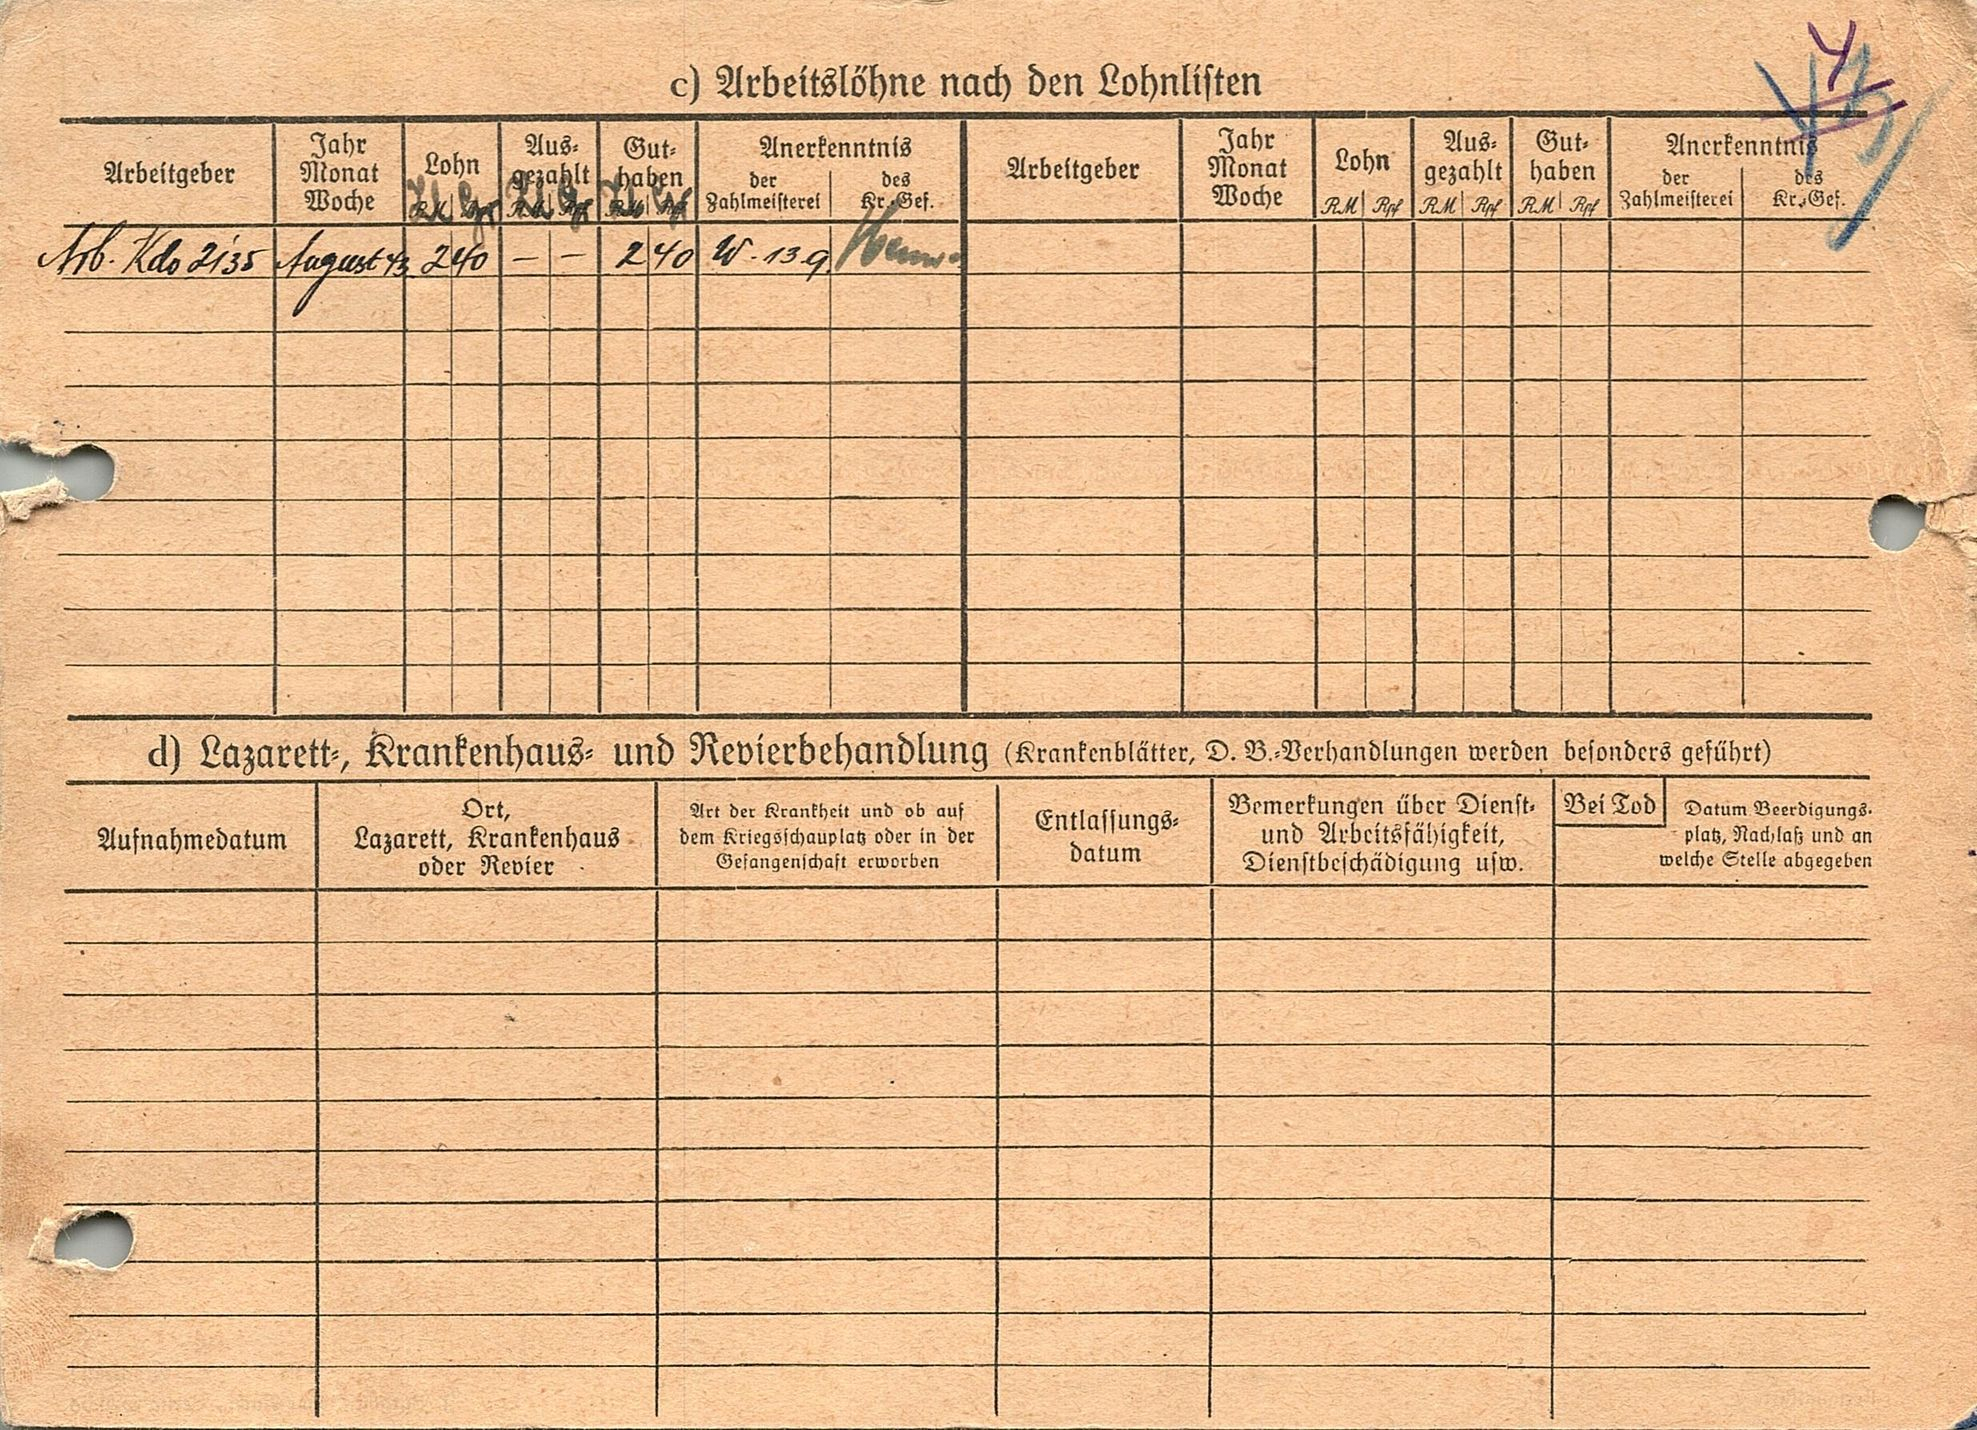 c) Arbeitslöhne nach den Lohnlisten
Arbeitgeber
Jahr
Monat
Woche
Lohn
RM
Aus-
gezahlt
RM Rpf
Gut-
haben
RM Rpf
Anerkenntnis
der
Zahlmeisterei
des
Kr.-Gef.
Arbeitgeber
Jahr
Monat
Woche
Lohn
RM Rpf
Aus-
gezahlt
RM Rpf
Gut-
haben
RM Rpf
Anerkenntnis
der
Zahlmeisterei
des
Kr.-Gef.
Arb. Kdo 2135 August 43 2 40 – – 2 40 W. 13.9.
d) Lazarett-, Krankenhaus- und Revierbehandlung (Krankenblätter, D. B.-Verhandlungen werden besonders geführt)
Aufnahmedatum
Ort,
Lazarett, Krankenhaus
oder Revier
Art der Krankheit und ob auf
dem Kriegsschauplatz oder in der
Gefangenschaft erworben
Entlassungs-
datum
Bemerkungen über Dienst-
und Arbeitsfähigkeit,
Dienstbeschädigung usw.
Bei Tod
Datum Beerdigungs-
platz, Nachlaß und an
welche Stelle abgegeben